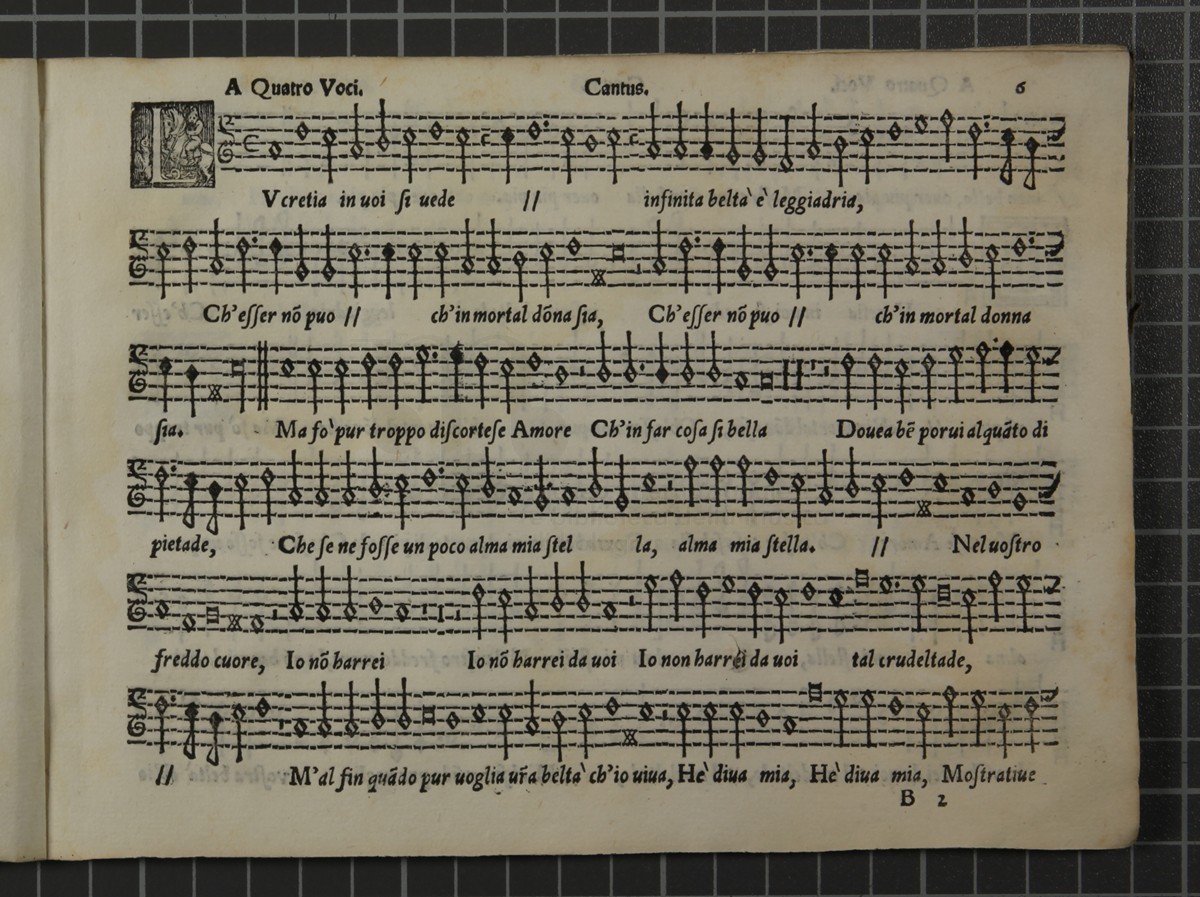 A Quatro Voci. Cantus. 6
L Vcretia in uoi ſi uede // infinita belta` e` leggiadria,
Ch'eſſer nō puo // ch'in mortal dōna ſia, Ch'eſſer nō puo // ch'in mortal donna
ſia. Ma fo` pur troppo diſcorteſe Amore Ch'in far coſa ſi bella Douea bē porui alquāto di
pietade, Che ſe ne foſſe un poco alma mia ſtel la, alma mia ſtella. // Nel uoſtro
freddo cuore, Io nō harrei Io nō harrei da uoi Io non harrei da uoi tal crudeltade,
// M'al fin quādo pur uoglia ur̄a belta` ch'io uiua, He` diua mia, He` diua mia, Moſtratiue
B 2